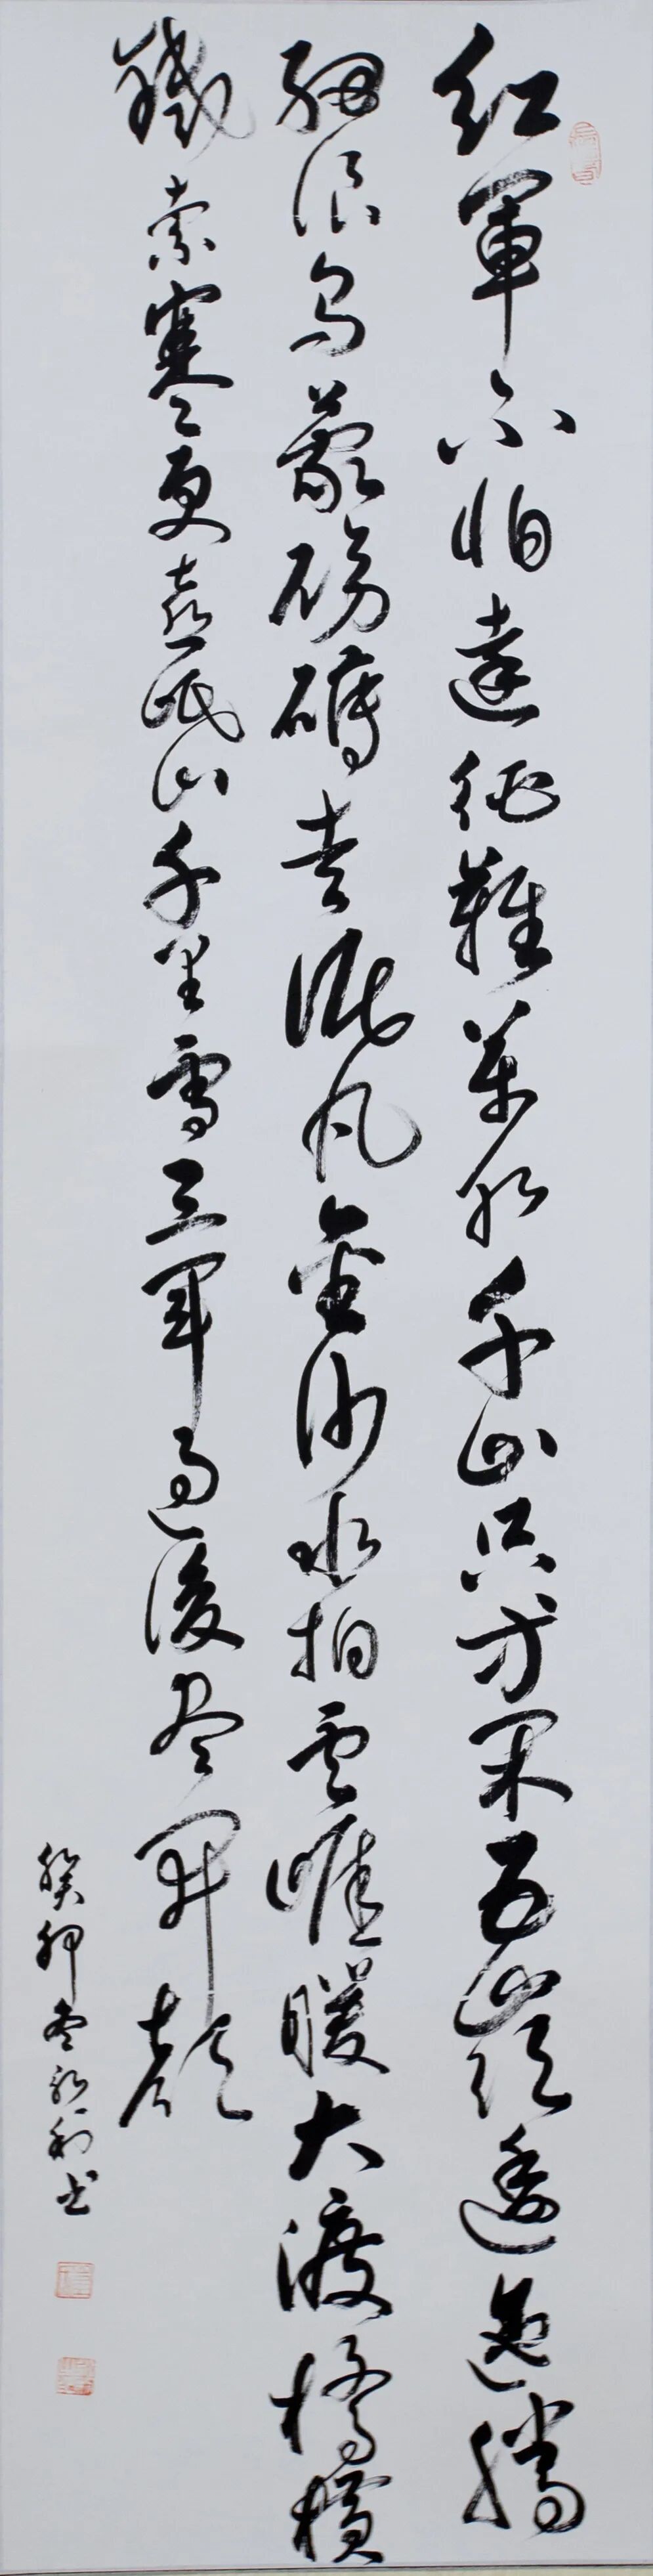 紅軍不怕遠征難萬水千山只等閑五嶺逶迤騰
細浪烏蒙磅礴走泥丸金沙水拍雲崖暖大渡橋橫
鐵索寒更喜岷山千里雪三軍過後盡開顏
癸卯冬利书